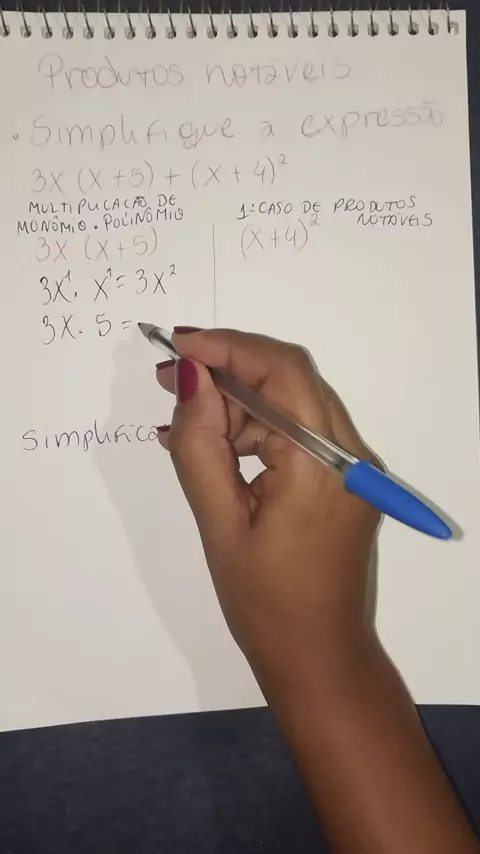 Produtos notáveis
• Simplifique a expressão
3x (x+5) + (x+4)²
MULTIPLICAÇÃO DE
MONÔMIO . POLINÔMIO
3x (x+5)
3x¹ . x¹ = 3x²
3x . 5 =
1º CASO DE PRODUTOS
NOTÁVEIS
(x+4)²
simplifica